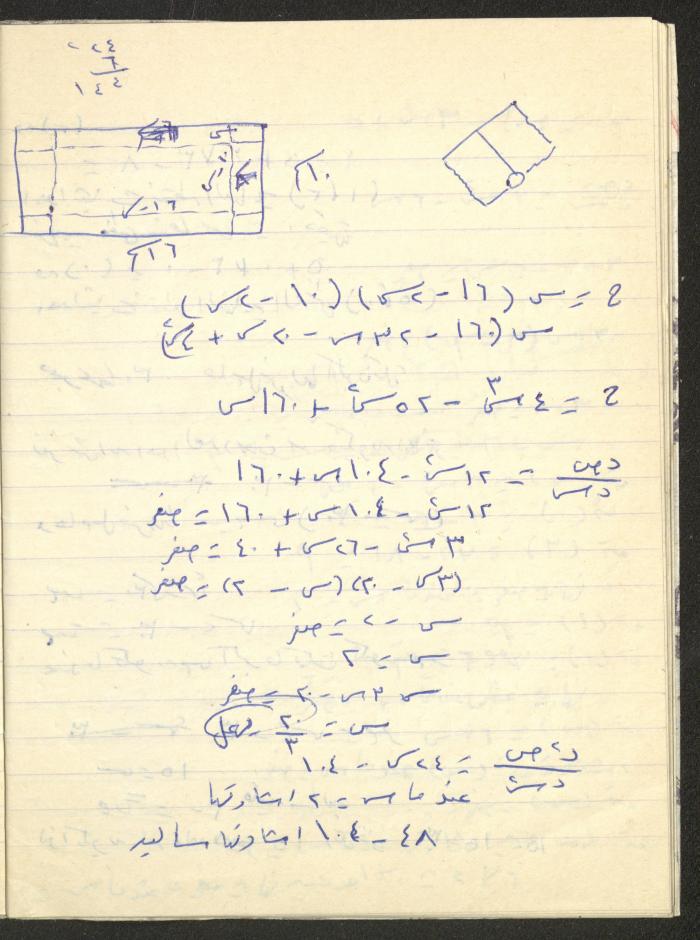 ٢٤
٦
١٤٤
س
١٠
١٦-٢س
١٦
ح = س (١٦ - ٢س) (١٠ - ٢س)
س (١٦٠ - ٣٢س - ٢٠س + ٤س٢)
ح = ٤س٣ - ٥٢س٢ + ١٦٠س
دص/دس = ١٢س٢ - ١٠٤س + ١٦٠
١٢س٢ - ١٠٤س + ١٦٠ = صفر
٣س٢ - ٢٦س + ٤٠ = صفر
(٣س - ٢٠) (س - ٢) = صفر
س - ٢ = صفر
س = ٢
٣س - ٢٠ = صفر
س = ٢٠/٣
د٢ص/دس٢ = ٢٤س - ١٠٤
عندما س = ٢ اشارتها
٤٨ - ١٠٤ اشارتها سالبه